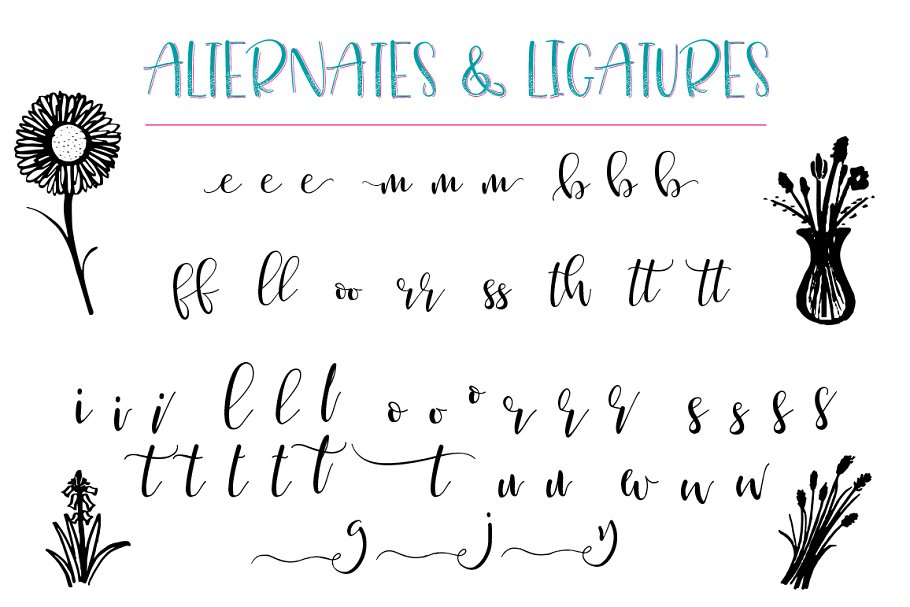 ALTERNATES & LIGATURES
e e e m m m b b b
ff ll oo rr ss th tt tt
i i i l l l o o o r r r s s s s
t t t t t t u u w w w
g j y